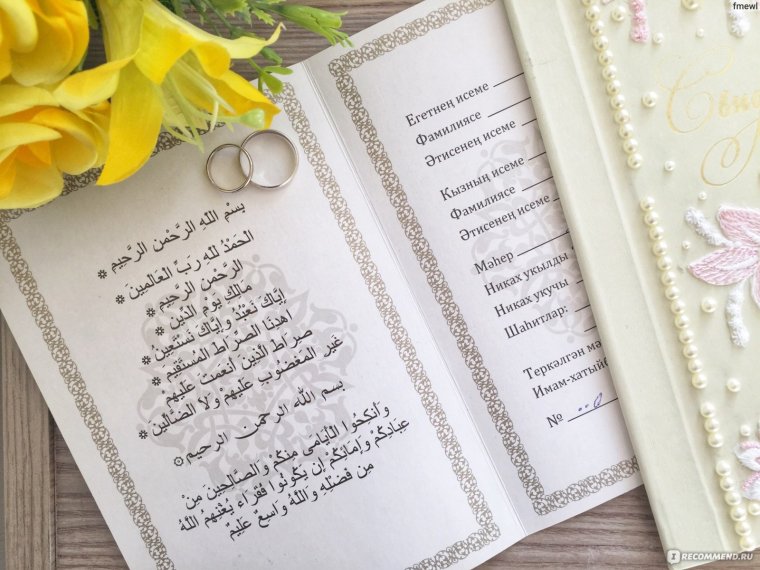 fmewl
بِسْمِ اللَّهِ الرَّحْمٰنِ الرَّحِيمِ
الْحَمْدُ لِلَّهِ رَبِّ الْعَالَمِينَ
الرَّحْمٰنِ الرَّحِيمِ
مَالِكِ يَوْمِ الدِّينِ
إِيَّاكَ نَعْبُدُ وَإِيَّاكَ نَسْتَعِينُ
اهْدِنَا الصِّرَاطَ الْمُسْتَقِيمَ
صِرَاطَ الَّذِينَ أَنْعَمْتَ عَلَيْهِمْ
غَيْرِ الْمَغْضُوبِ عَلَيْهِمْ وَلَا الضَّالِّينَ
بسم الله الرحمن الرحيم
وَأَنْكِحُوا الْأَيَامَى مِنْكُمْ وَالصَّالِحِينَ مِنْ
عِبَادِكُمْ وَإِمَائِكُمْ إِنْ يَكُونُوا فُقَرَاءَ يُغْنِهِمُ اللَّهُ
مِنْ فَضْلِهِ وَاللَّهُ وَاسِعٌ عَلِيمٌ
Егетнең исеме
Фамилиясе
Әтисенең исеме
Кызның исеме
Фамилиясе
Әтисенең исеме
Мәһер
Никах укылды
Никах укучы
Шаһитлар:
Теркәлгән
Имам-хатыйб
№
IRECOMMEND.RU